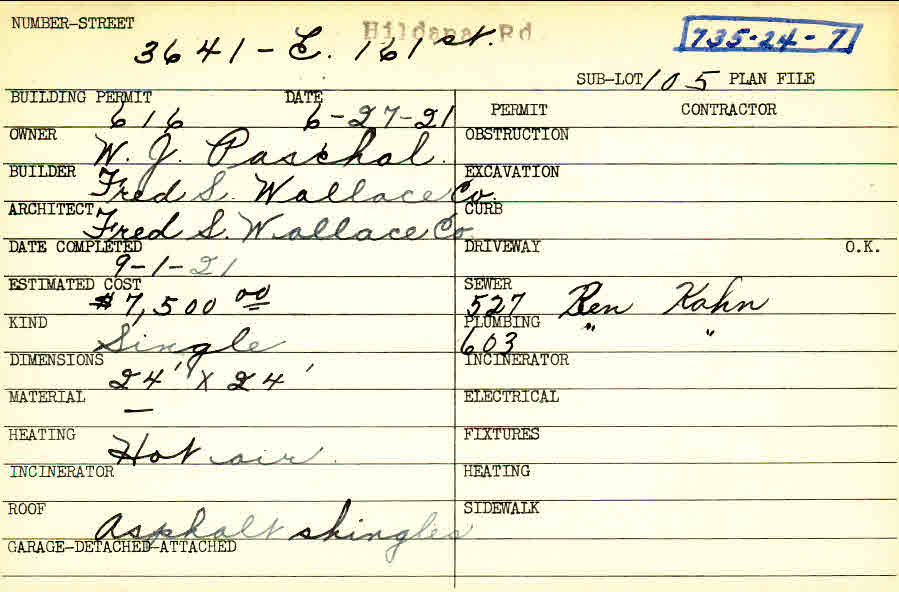 NUMBER-STREET Hildana Rd
3641 - E. 161 st. 735-24-7
SUB-LOT 105 PLAN FILE
BUILDING PERMIT DATE
616 6-27-21
PERMIT CONTRACTOR
OWNER W. J. Paschal.
OBSTRUCTION
BUILDER Fred S. Wallace Co.
EXCAVATION
ARCHITECT Fred S. Wallace Co.
CURB
DATE COMPLETED
9-1-21
DRIVEWAY O.K.
ESTIMATED COST
$7,500 00
SEWER
527 Ben Kahn
KIND
Single
PLUMBING
603 " "
DIMENSIONS
24' X 24'
INCINERATOR
MATERIAL
—
ELECTRICAL
HEATING
Hot air.
FIXTURES
INCINERATOR
HEATING
ROOF
Asphalt shingles
SIDEWALK
GARAGE-DETACHED-ATTACHED